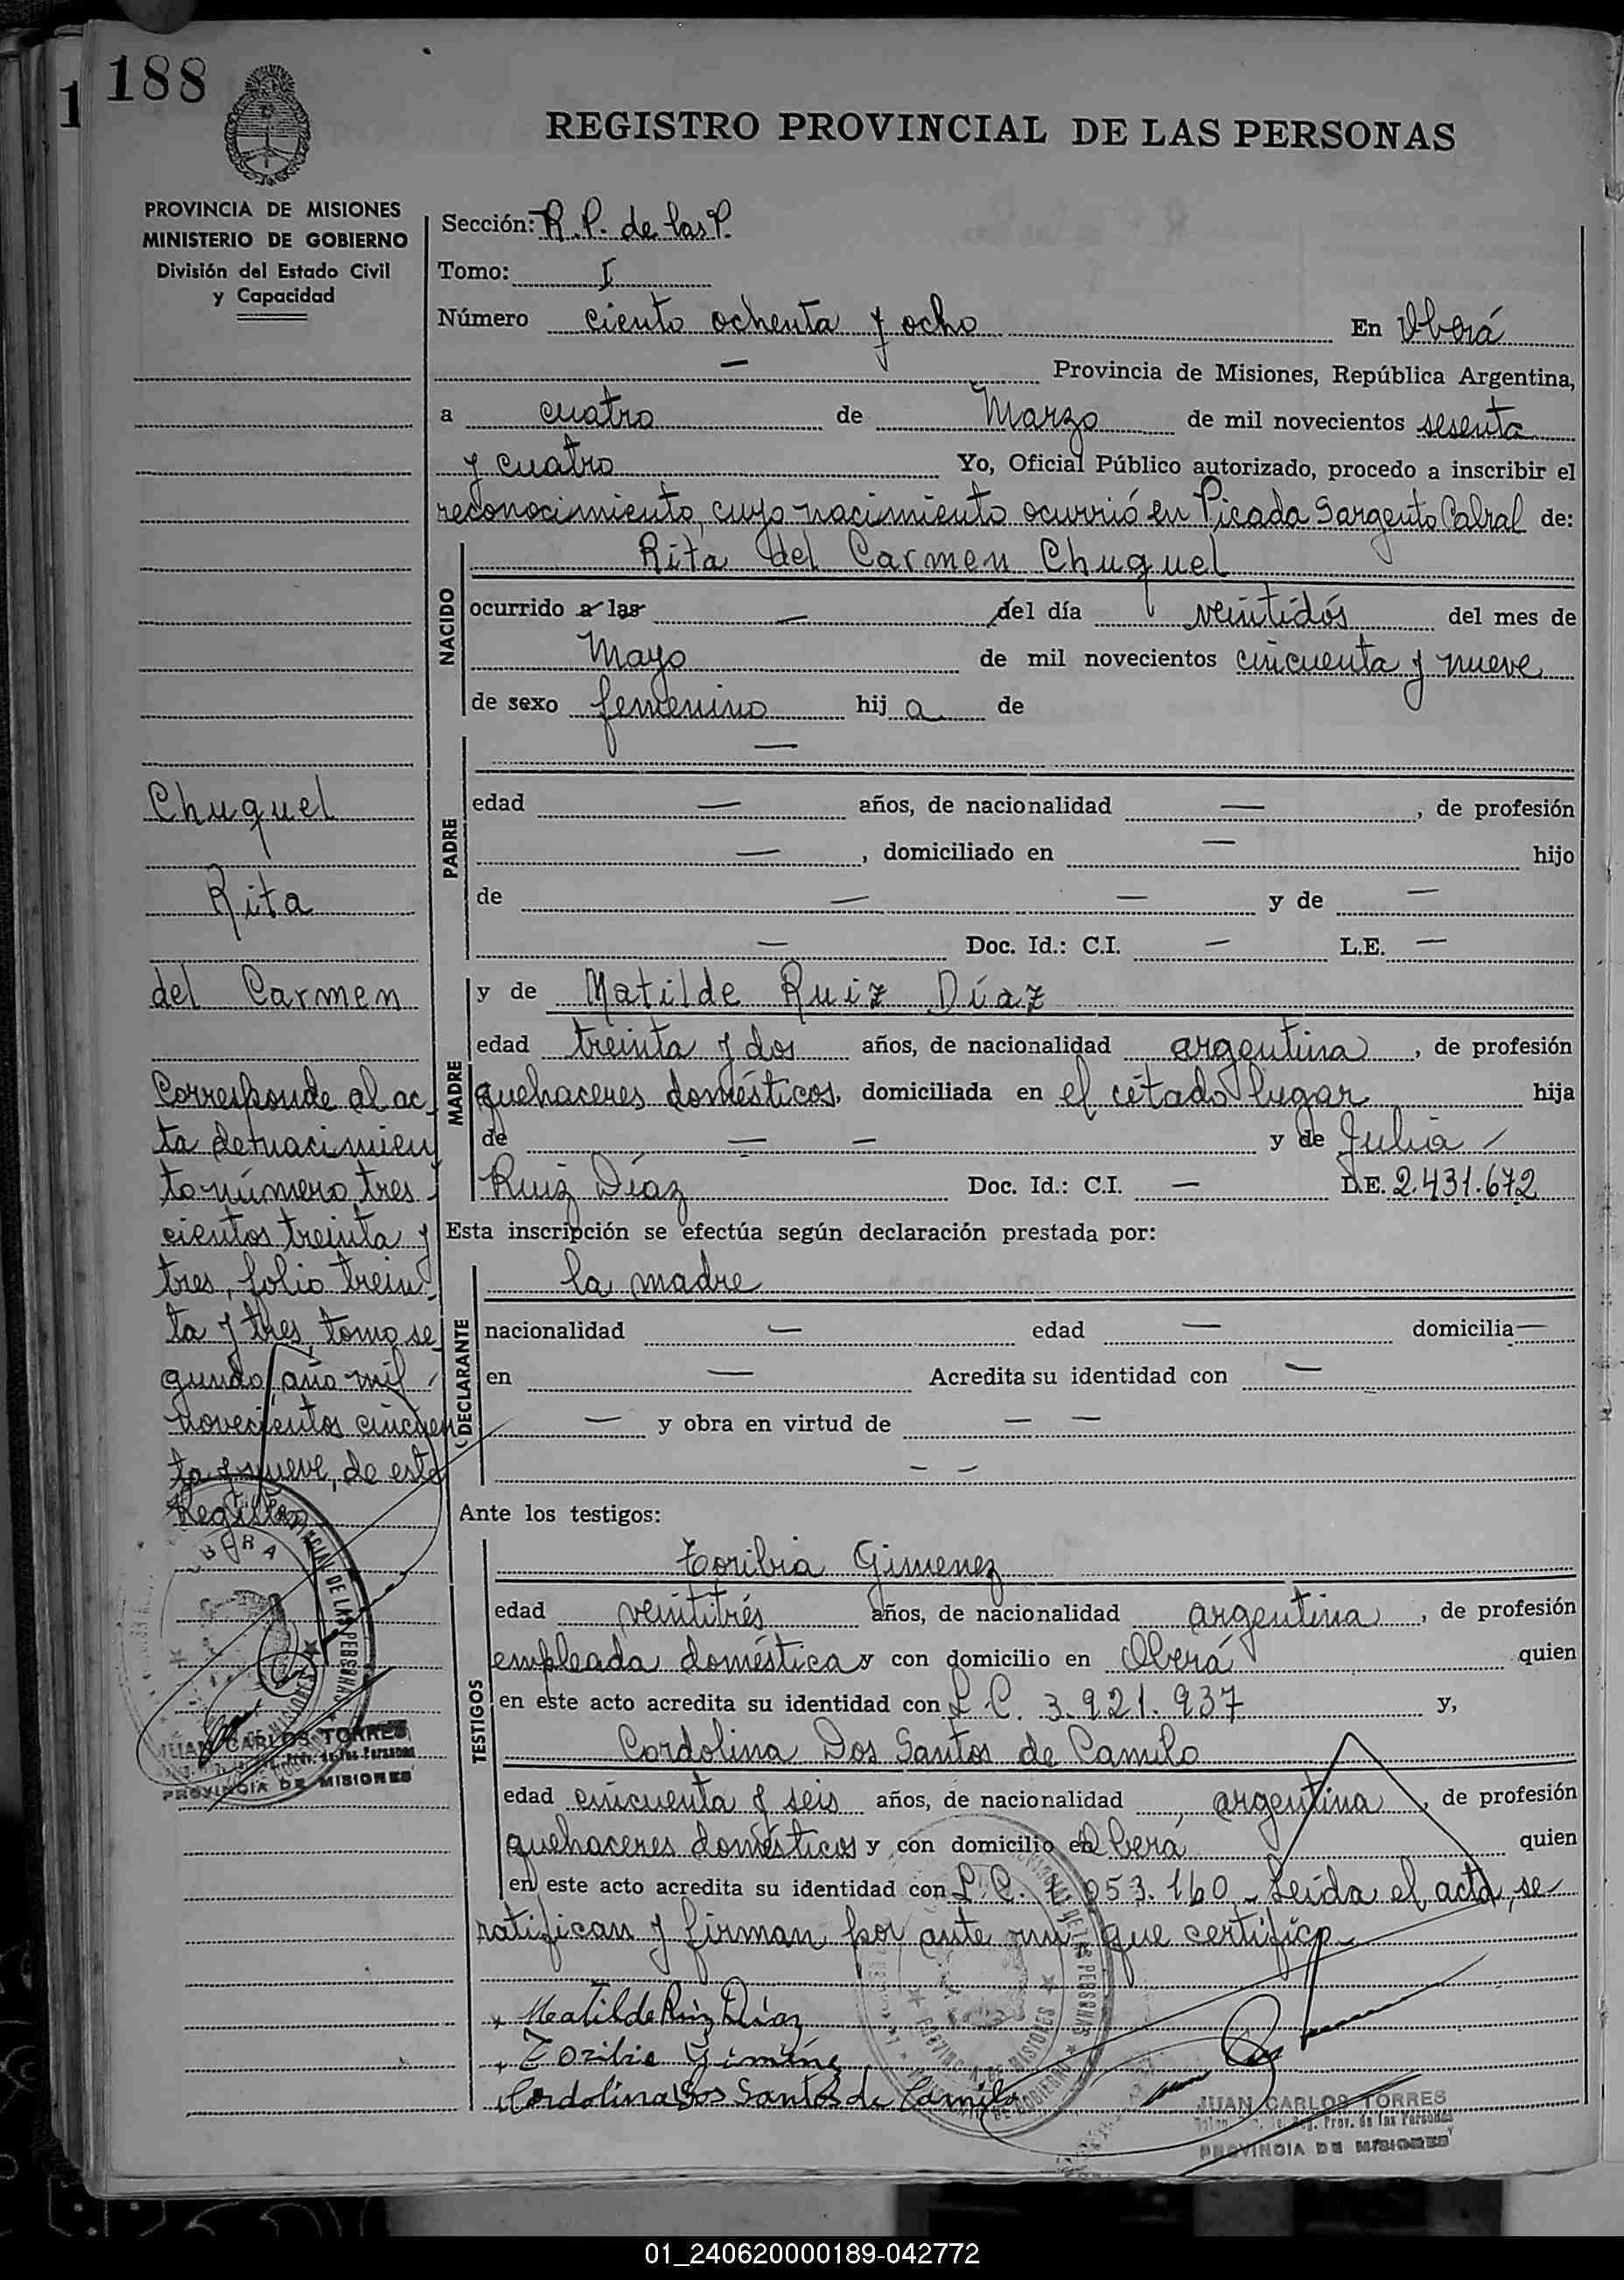 188
1
REGISTRO PROVINCIAL DE LAS PERSONAS
PROVINCIA DE MISIONES
MINISTERIO DE GOBIERNO
División del Estado Civil
y Capacidad
Sección: R.P. de las P.
Tomo: I
Número ciento ochenta y ocho En Oberá
— Provincia de Misiones, República Argentina,
a cuatro de Marzo de mil novecientos sesenta
y cuatro Yo, Oficial Público autorizado, procedo a inscribir el
reconocimiento, cuyo nacimiento ocurrió en Picada Sargento Cabral de:
NACIDO
Rita del Carmen Chuquel
ocurrido a las — del día veintidós del mes de
Mayo de mil novecientos cincuenta y nueve
de sexo femenino hija de
PADRE
—
edad — años, de nacionalidad —, de profesión
—, domiciliado en — hijo
de — — y de —
— Doc. Id.: C.I. — L.E. —
MADRE
y de Matilde Ruiz Díaz
edad treinta y dos años, de nacionalidad argentina, de profesión
quehaceres domésticos, domiciliada en el cetado lugar hija
de — — y de Julia
Ruiz Díaz Doc. Id.: C.I. — D.E. 2.431.672
Esta inscripción se efectúa según declaración prestada por:
DECLARANTE
la madre
nacionalidad — edad — domicilia—
en — Acredita su identidad con —
— y obra en virtud de — —
— —
Ante los testigos:
TESTIGOS
Toribia Gimenez
edad veintitrés años, de nacionalidad argentina, de profesión
empleada doméstica y con domicilio en Oberá quien
en este acto acredita su identidad con L.C. 3.921.937 y,
Cordolina Dos Santos de Camilo
edad cincuenta y seis años, de nacionalidad argentina, de profesión
quehaceres domésticos y con domicilio en Oberá quien
en este acto acredita su identidad con L.C. 053.160 - Leída el acta, se
ratifican y firman por ante mi que certifico -
Matilde Ruiz Díaz
Toribia Giménez
Cordolina Dos Santos de Camilo
JUAN CARLOS TORRES
Prov. de las Personas
PROVINCIA DE MISIONES
Chuquel
Rita
del Carmen
Corresponde al ac
ta de nacimien
to número tres
cientos treinta y
tres, folio trein
ta y tres, tomo se
gundo, año mil
novecientos cincuen
ta y nueve, de este
Registro
OBERA
JUAN CARLOS TORRES
Prov. de las Personas
PROVINCIA DE MISIONES
01_240620000189-042772